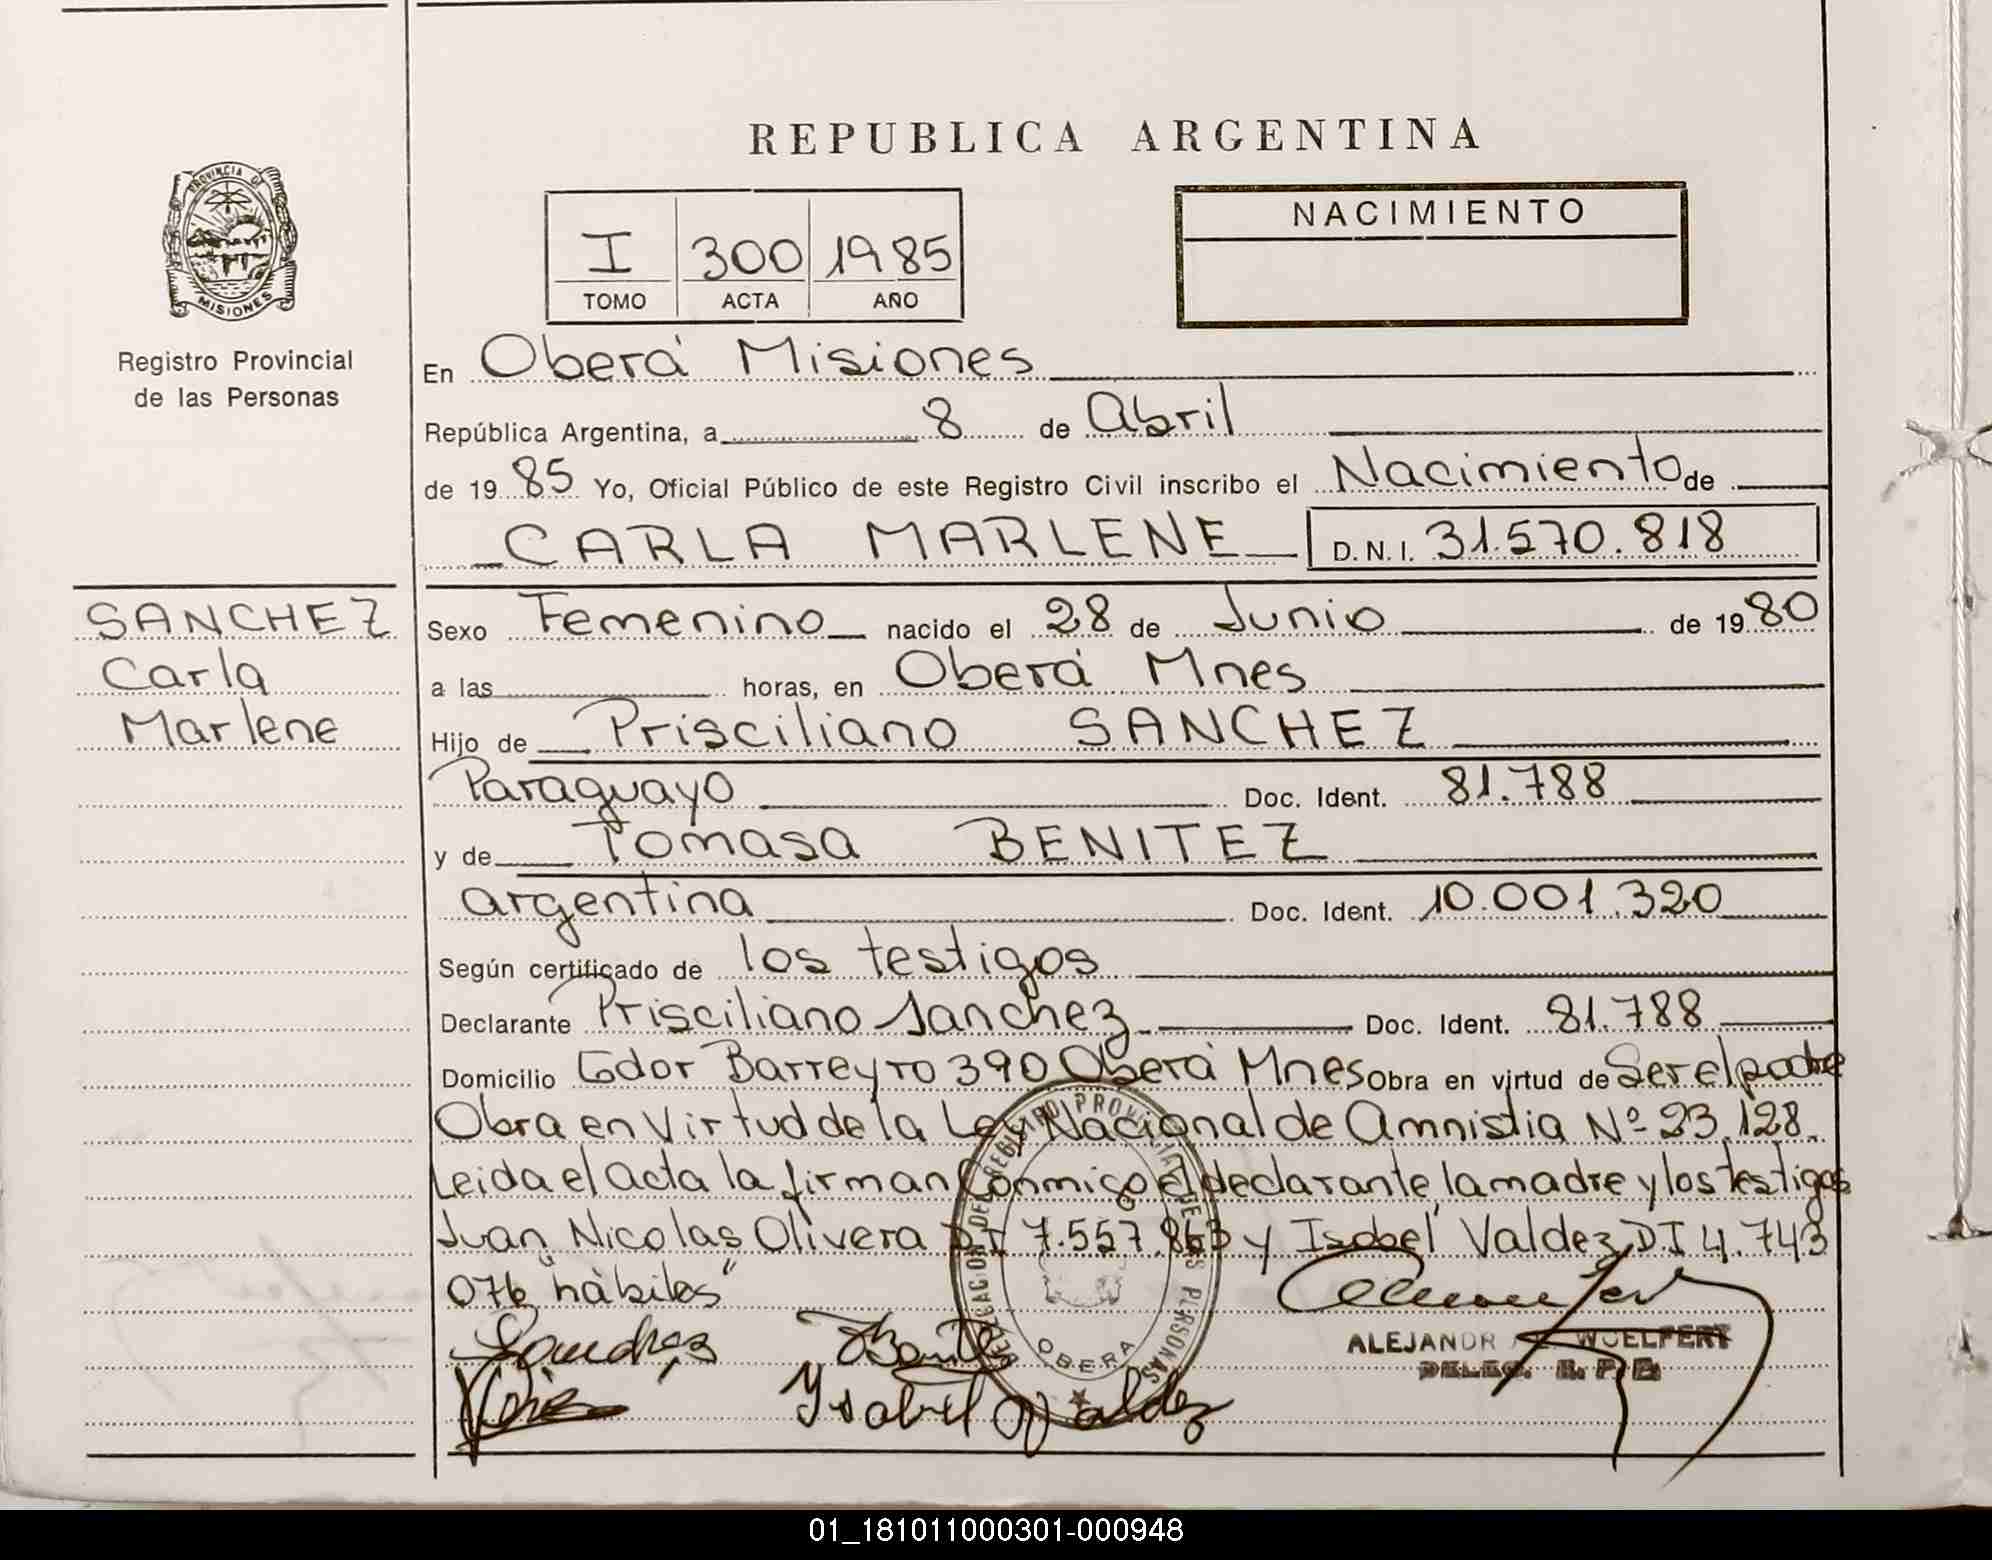 REPUBLICA ARGENTINA
PROVINCIA DE
MISIONES
Registro Provincial
de las Personas
I 300 1985
TOMO ACTA AÑO
NACIMIENTO
En Oberá Misiones
República Argentina, a 8 de Abril
de 1985 Yo, Oficial Público de este Registro Civil inscribo el Nacimiento de
CARLA MARLENE D.N.I. 31.570.818
SANCHEZ
Carla
Marlene
Sexo Femenino nacido el 28 de Junio de 1980
a las horas, en Oberá Mnes
Hijo de Prisciliano SANCHEZ
Paraguayo Doc. Ident. 81.788
y de Tomasa BENITEZ
argentina Doc. Ident. 10.001.320
Según certificado de los testigos
Declarante Prisciliano Sanchez Doc. Ident. 81.788
Domicilio Gdor Barreyro 390 Oberá Mnes Obra en virtud de Ser el padre
Obra en Virtud de la Ley Nacional de Amnistia Nº 23.128.
Leida el acta la firman Conmigo el declarante, la madre y los testigos
Juan Nicolas Olivera D.I 7.557.863 y Isabel Valdez D.I 4.743
076 "hàbiles"
DELEGACION DEL REGISTRO PROVINCIAL DE LAS PERSONAS
OBERA
Sanchez
Ysabel Valdez
ALEJANDR WOELFERT
DELEG. R. P. P.
01_181011000301-000948